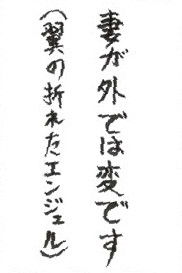 妻が外では変です
（翼の折れたエンジェル）